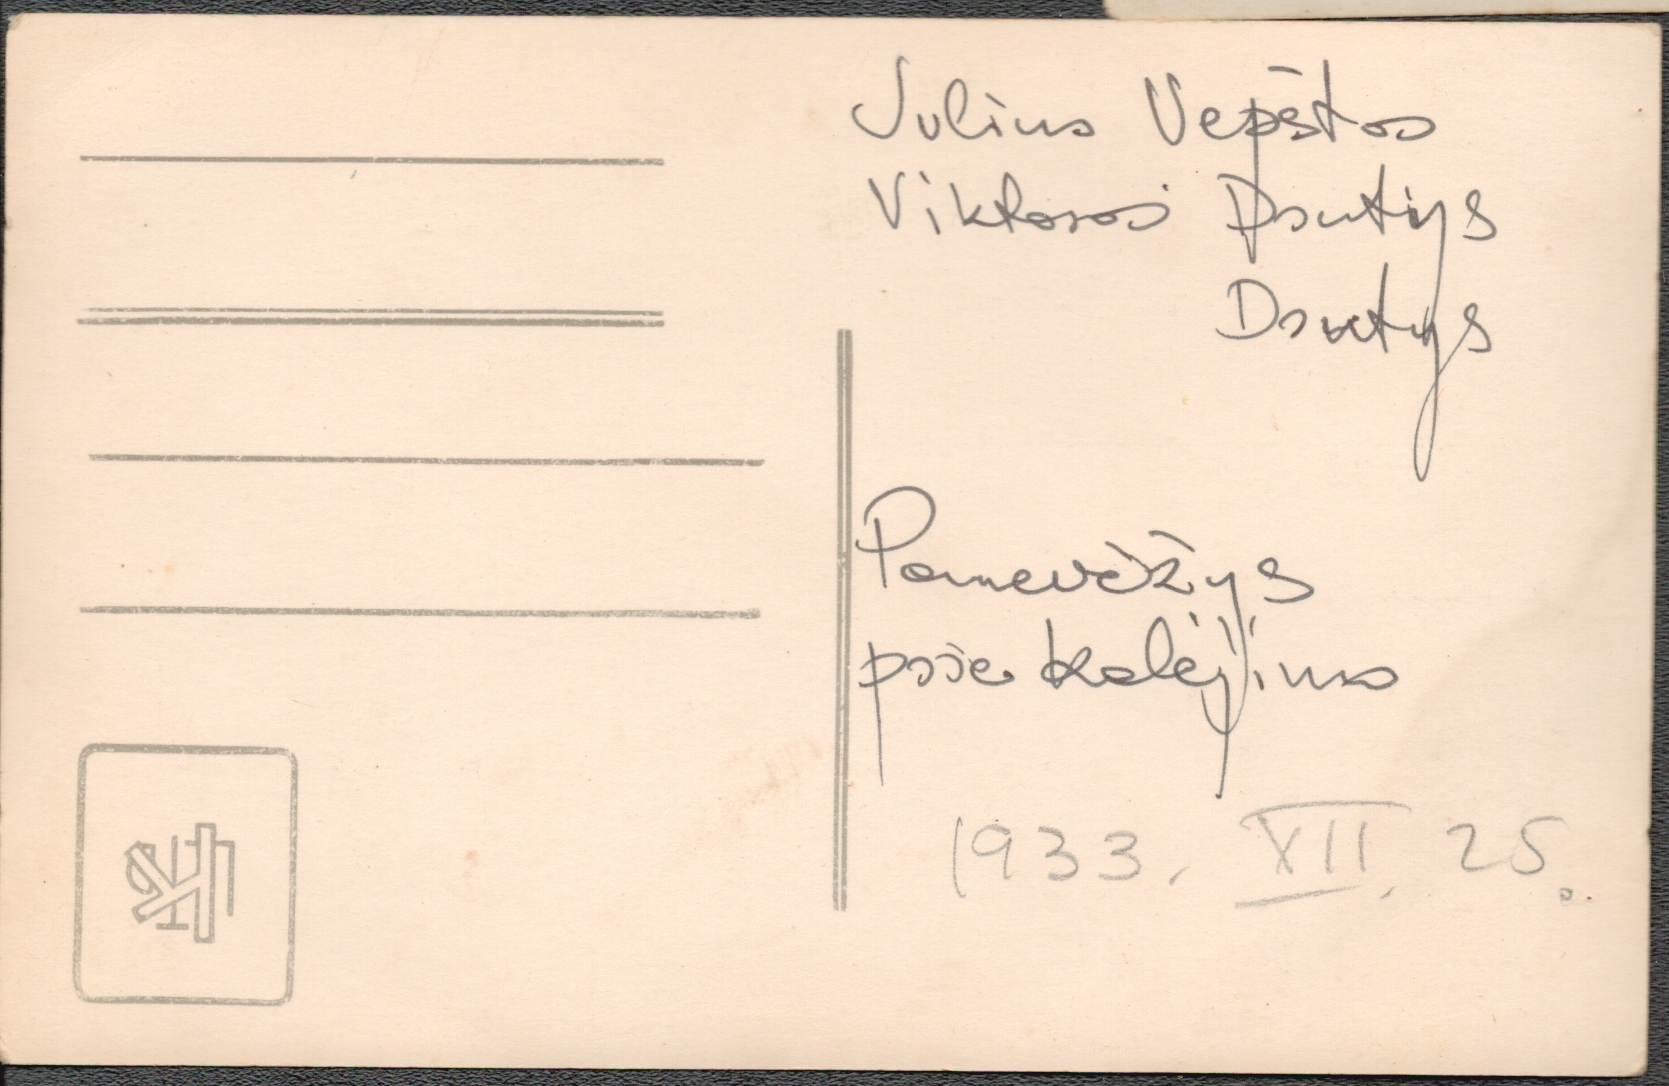 Julius Vepštas
Viktoras Drutys
Drutys
Panevėžys
prie kalėjimo
1933. XII. 25.